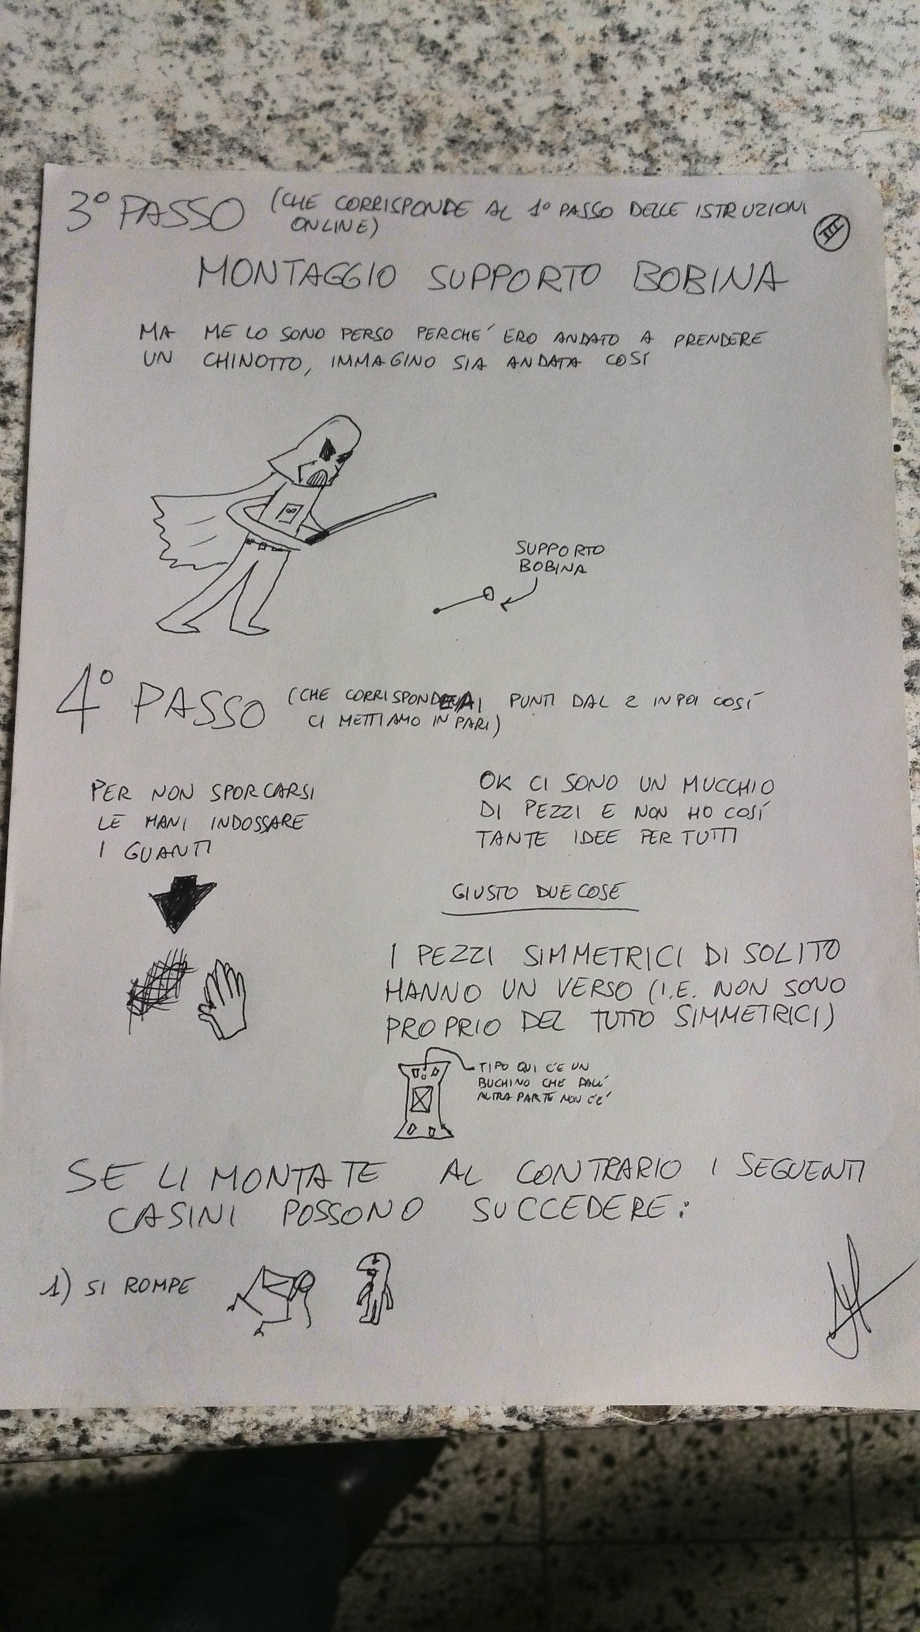 3° PASSO (CHE CORRISPONDE AL 1° PASSO DELLE ISTRUZIONI
ONLINE)
III
MONTAGGIO SUPPORTO BOBINA
MA ME LO SONO PERSO PERCHE' ERO ANDATO A PRENDERE
UN CHINOTTO, IMMAGINO SIA ANDATA COSÌ
SUPPORTO
BOBINA
4° PASSO (CHE CORRISPONDE AI PUNTI DAL 2 IN POI COSÌ
CI METTIAMO IN PARI)
PER NON SPORCARSI
LE MANI INDOSSARE
I GUANTI
OK CI SONO UN MUCCHIO
DI PEZZI E NON HO COSÌ
TANTE IDEE PER TUTTI
GIUSTO DUE COSE
I PEZZI SIMMETRICI DI SOLITO
HANNO UN VERSO (I.E. NON SONO
PROPRIO DEL TUTTO SIMMETRICI)
TIPO QUI C'È UN
BUCHINO CHE DALL'
ALTRA PARTE NON C'È
SE LI MONTATE AL CONTRARIO I SEGUENTI
CASINI POSSONO SUCCEDERE:
1) SI ROMPE